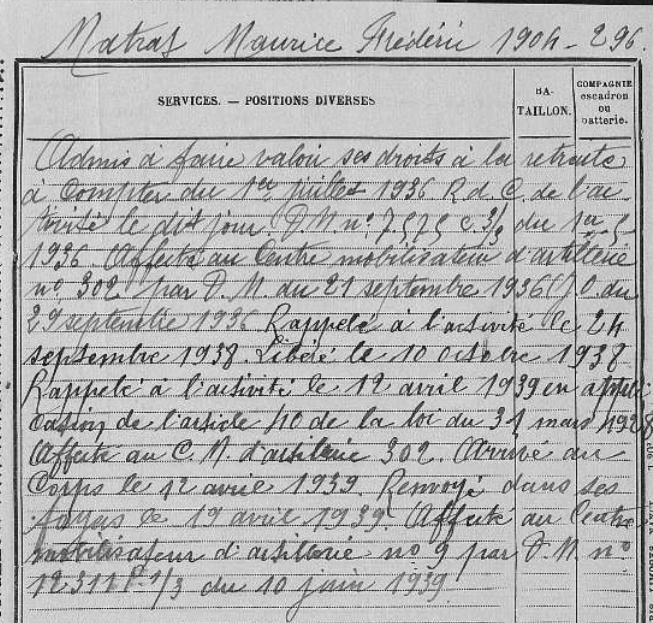 Matras Maurice Frédéric 1904 - 296.
SERVICES. — POSITIONS DIVERSES
BA-
TAILLON.
COMPAGNIE
escadron
ou
batterie.
Admis à faire valoir ses droits à la retraite
à compter du 1er juillet 1936 R d C. de l'ac-
tivité le dit jour. D.M n° 7575 c 3/9 du 1er 5
1936. Affecté au Centre mobilisateur d'artillerie
n° 302 par D. M du 21 septembre 1936 (J.O. du
29 septembre 1936 Rappelé à l'activité le 24
septembre 1938. Libéré le 10 octobre 1938
Rappelé à l'activité le 12 avril 1939 en appli-
cation de l'article 40 de la loi du 31 mars 1928
Affecté au C. M. d'artillerie 302. Arrivé au
Corps le 12 avril 1939. Renvoyé dans ses
foyers le 19 avril 1939. Affecté au Centre
mobilisateur d'artillerie n° 9 par D. M. n°
12.311 P. 1/3 du 10 juin 1939.